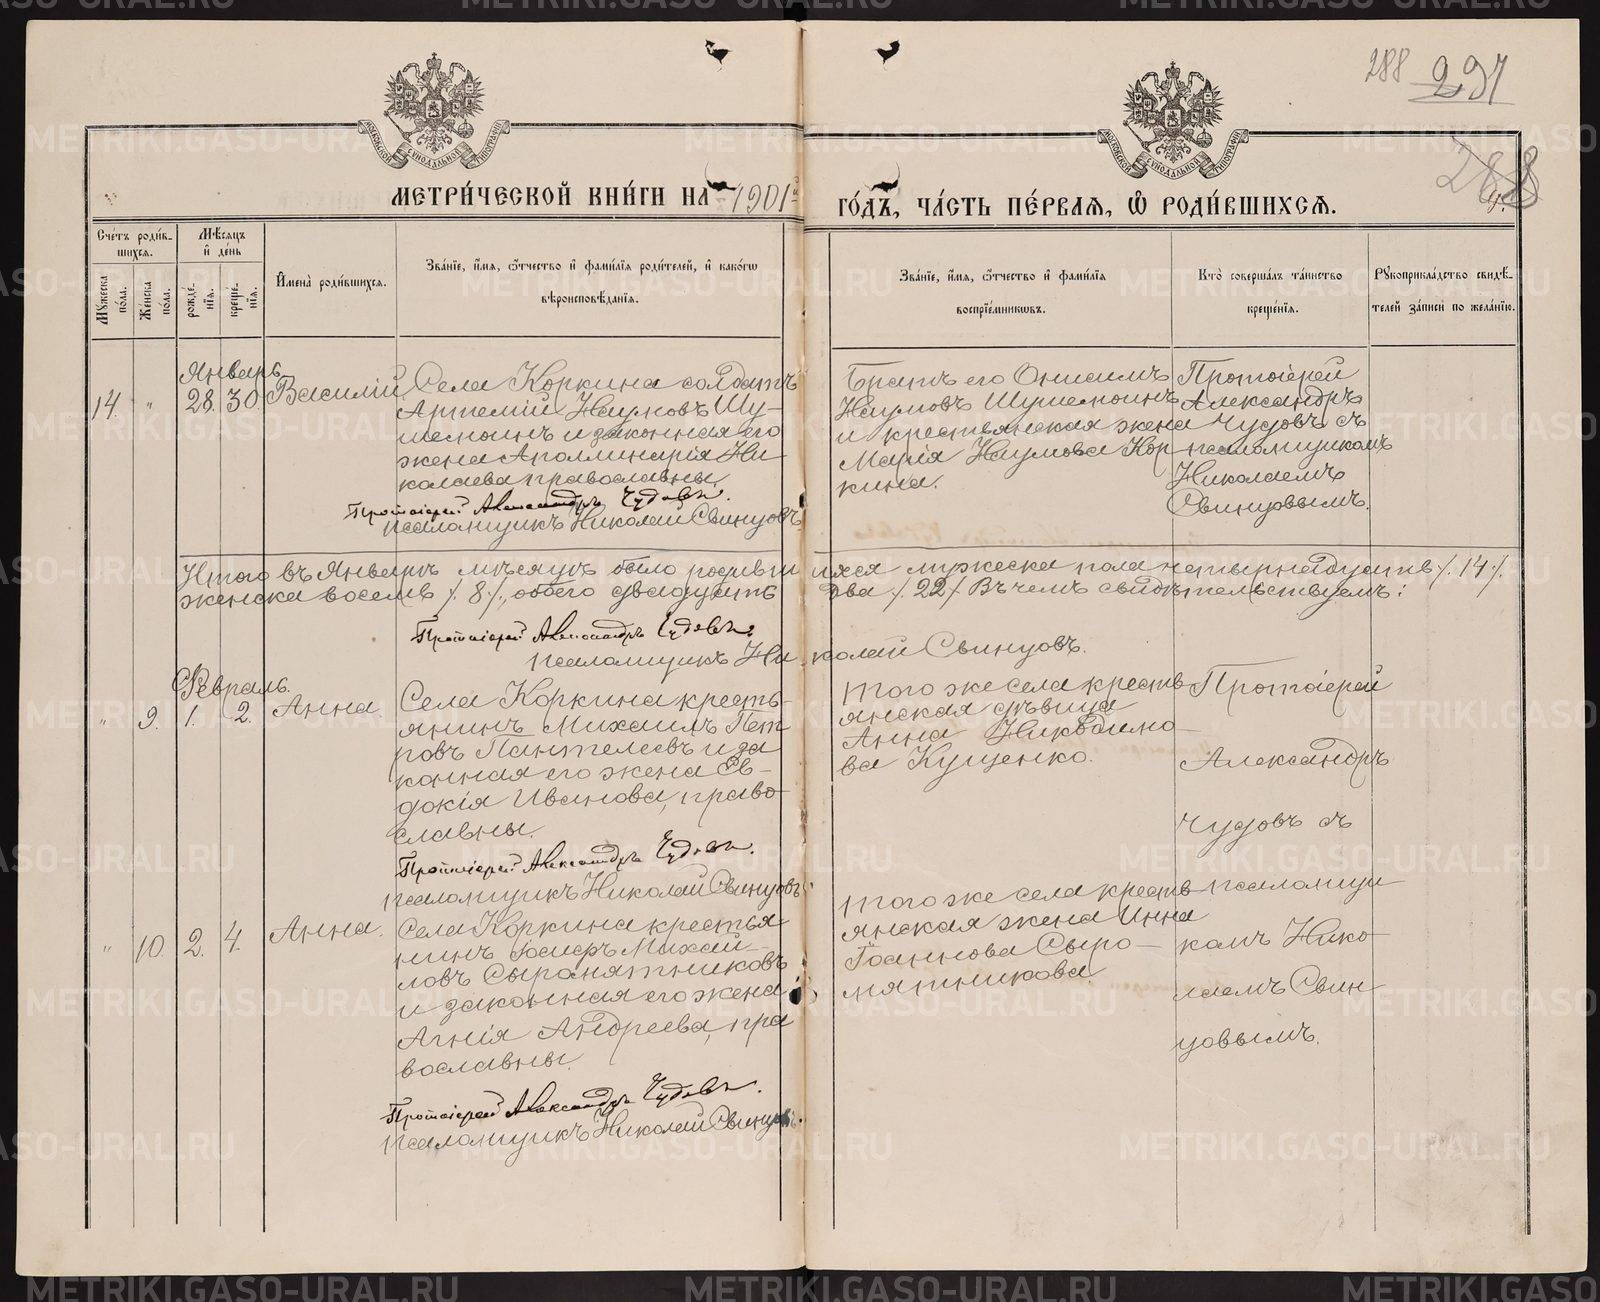 288 291
288
МЕТРИ́ЧЕСКОЙ КНИ́ГИ НА 1901 ГО́ДЪ, ЧА́СТЬ ПЕ́РВАѦ, Ѡ РОДИ́ВШИХСѦ.
Сче́тъ роди́вшихсѧ.
Мѣ́сѧцъ и де́нь
Мꙋ́жеска по́ла.
Же́нска по́ла.
рожде́нїѧ.
креще́нїѧ.
И҆мена̀ роди́вшихсѧ.
Зва́нїе, и҆́мѧ, ѻ҆́тчество и҆ фами́лїѧ роди́телей, и҆ како́гѡ
вѣроисповѣ́данїѧ.
Зва́нїе, и҆́мѧ, ѻ҆́тчество и҆ фами́лїѧ
воспрїе́мникѡвъ.
Кто̀ соверша́лъ та́инство
креще́нїѧ.
Рꙋкоприкла́дство свидѣ́-
телей за́писи по жела́нїю.
Январь
14. " 28. 30. Василій
Села Коркина солдатъ
Артемій Наумовъ Шу-
шемоинъ и законная его
жена Аполлинарія Ни-
колаева, православны.
Протоіерей Александръ Чудовъ.
псаломщикъ Николай Свинцовъ
Братъ его Онисимъ
Наумовъ Шушемоинъ
и крестьянская жена
Марія Наумова Кор
кина.
Протоіерей
Александръ
Чудовъ съ
псаломщикомъ
Николаемъ
Свинцовымъ.
Итого въ Январѣ мѣсяцѣ было родившихся мужеска пола четырнадцать /. 14 /.
женска восемь /. 8 /., обоего двадцать два /. 22 /. Въ чемъ свидѣтельствуемъ:
Протоіерей Александръ Чудовъ.
псаломщикъ Николай Свинцовъ.
Февраль.
" 9. 1. 2. Анна.
Села Коркина кресть-
янинъ Михаилъ Пет
ровъ Пантелеевъ и за
конная его жена Ев-
докія Иванова, право-
славны.
Протоіерей Александръ Чудовъ.
псаломщикъ Николай Свинцовъ
того же села кресть
янская дѣвица
Анна Никодимо-
ва Кущенко.
Протоіерей
Александръ
Чудовъ съ
псаломщи
комъ Нико-
лаемъ Свин
цовымъ.
" 10. 2. 4. Анна.
Села Коркина крестья
нинъ Іосифъ Михай-
ловъ Сыромятниковъ
и законная его жена
Агнія Андреева, пра
вославны.
Протоіерей Александръ Чудовъ.
псаломщикъ Николай Свинцовъ.
того же села кресть
янская жена Инна
Іоаннова Сыро-
мятникова.
METRIKI.GASO-URAL.RU